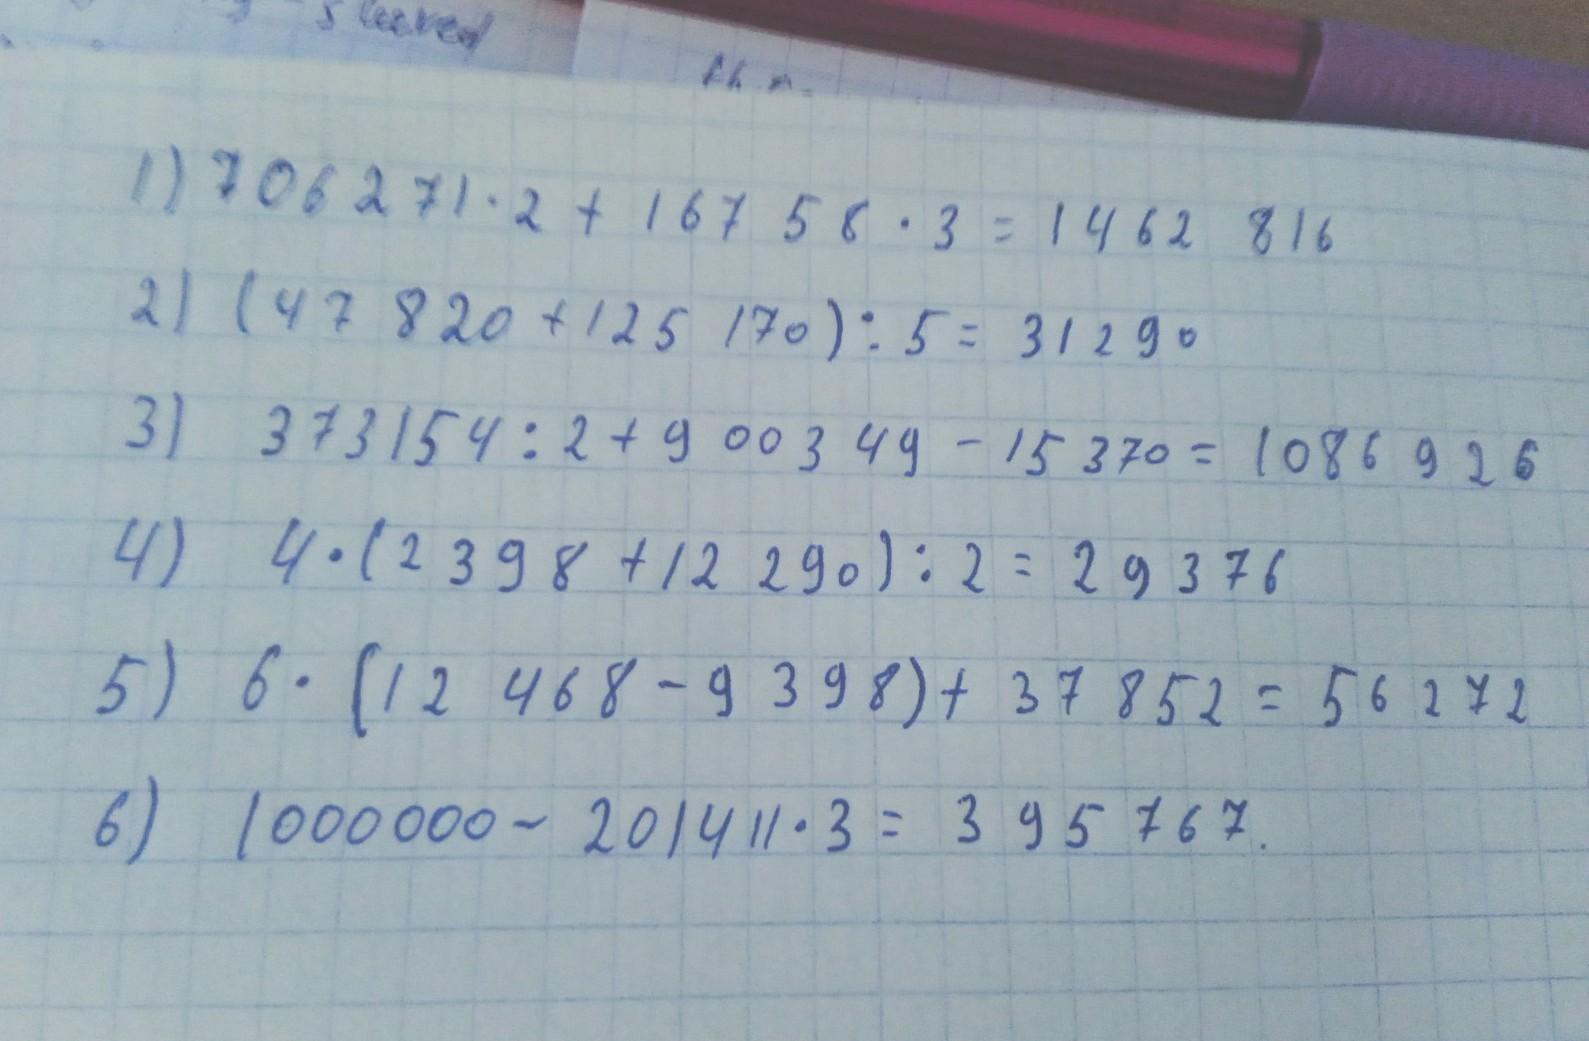 1) 706271·2 + 16758·3 = 1462 816
2) (47 820 + 125 170) : 5 = 31290
3) 373154 : 2 + 900349 - 15370 = 1086926
4) 4·(2398 + 12 290) : 2 = 29376
5) 6·(12 468 - 9398) + 37 852 = 56272
6) 1000000 - 201411·3 = 395767.